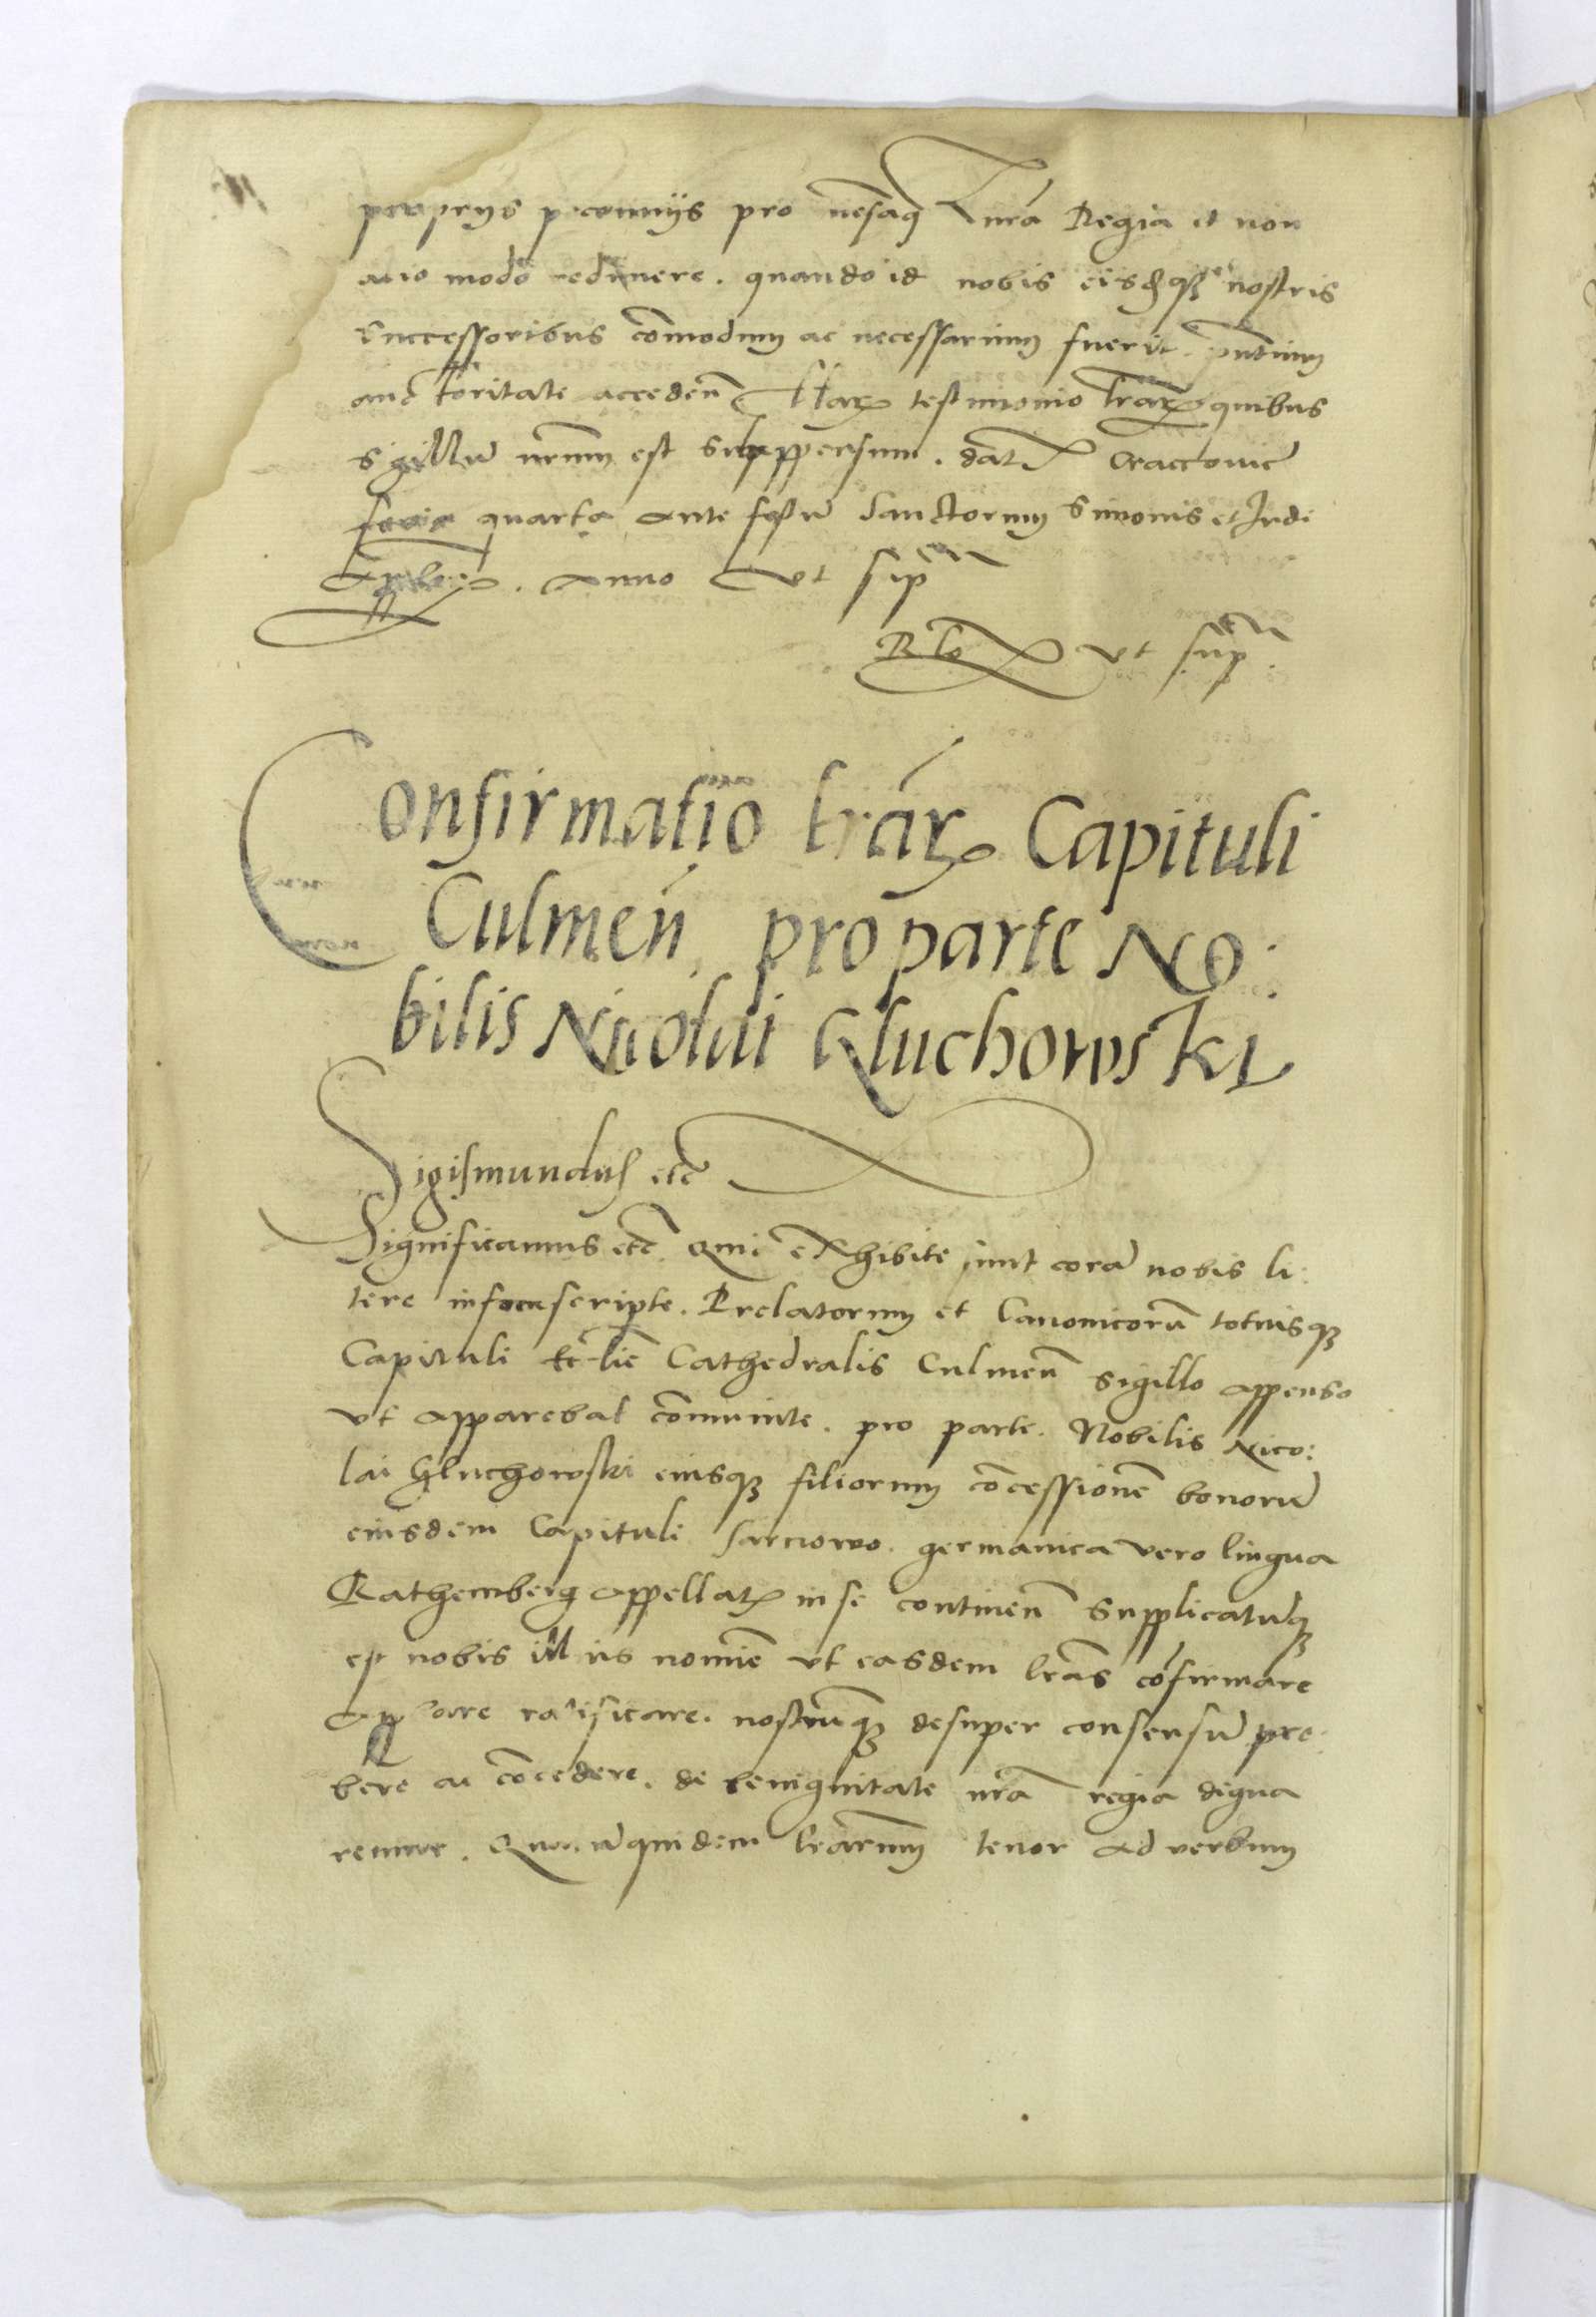 proprys pecuniys pro mēsaq̄ nr̄a Regia et non
alio modo redimere. quando id nobis eisdq3 nostris
Successoribus cōmodum ac necessarium fuerit. pn̄tium
auctoritate acceden̄ Harꝝ testimonio lr̄arꝝ quibus
sigillū nr̄um est subappensum. dat Cracouie
feria quarta ante festū Sanctorum Simonis et Jude
Aplorꝝ. Anno vt sup̄
Rlo vt sup̄.
Confirmatio lr̄arꝝ Capituli
Culmen̄. pro parte No:
bilis Nicolai Gluchowski
Sigismundus etc̄
Significamus etc̄ Quī exhibite sunt corā nobis li:
tere infrascripte. Prelatorum et Canonicorū totiusq3
Capituli Ecc̄lie Cathedralis Culmen̄ sigillo appenso
vt apparebat cōmunite. pro parte. Nobilis Nico:
lai Gluchowski eiusq3 filiorum cōcessionē bonorū
eiusdem Capituli Sarnowo. germanica vero lingua
Rathemberg appellatꝝ in se continen̄ Supplicatūq3
est nobis illius nomīe vt easdem lr̄as cōfirmare
approbare ratificare. nostrūq3 desuper consensū pre:
bere ac cōcedere. de benignitate nr̄a regia digna
remur. Quarūquidem lr̄arum tenor ad verbum